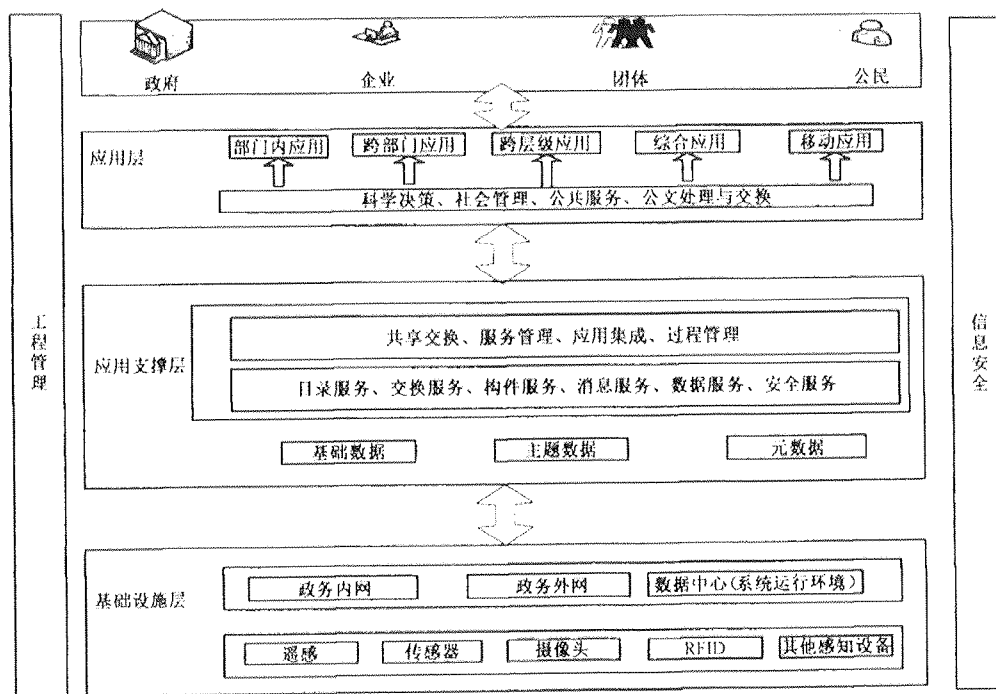 政府 企业 团体 公民
应用层
部门内应用 跨部门应用 跨层级应用 综合应用 移动应用
科学决策、社会管理、公共服务、公文处理与交换
工程管理
应用支撑层
共享交换、服务管理、应用集成、过程管理
目录服务、交换服务、构件服务、消息服务、数据服务、安全服务
基础数据 主题数据 元数据
信息安全
基础设施层
政务内网 政务外网 数据中心(系统运行环境)
遥感 传感器 摄像头 RFID 其他感知设备